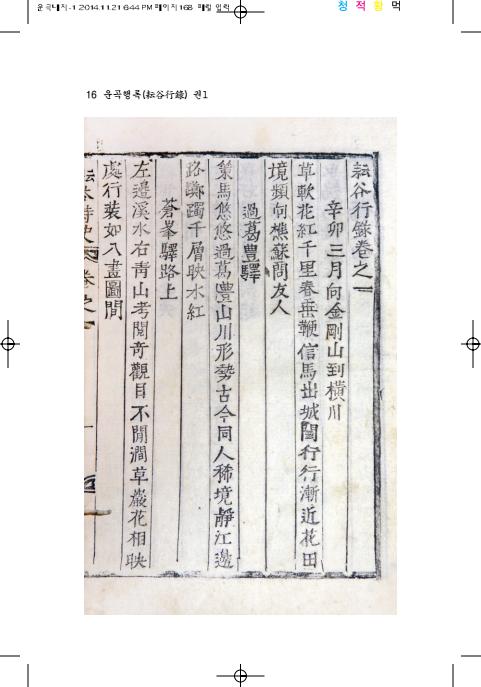 운곡내지-1 2014.11.21 6:44 PM 페이지168 매킨 입력
청 적 황 먹
16 운곡행록(耘谷行錄) 권1
耘谷行錄卷之一
辛卯三月向金剛山到橫川
草軟花紅千里春垂鞭信馬出城闉行行漸近花田
境頻向樵蘇問友人
過葛豊驛
策馬悠悠過葛豊山川形勢古今同人稀境靜江邊
路躑躅千層映水紅
蒼峯驛路上
左邊溪水右靑山考閱奇觀目不閒澗草巖花相映
處行裝如入畫圖間
耘谷詩史 卷之一